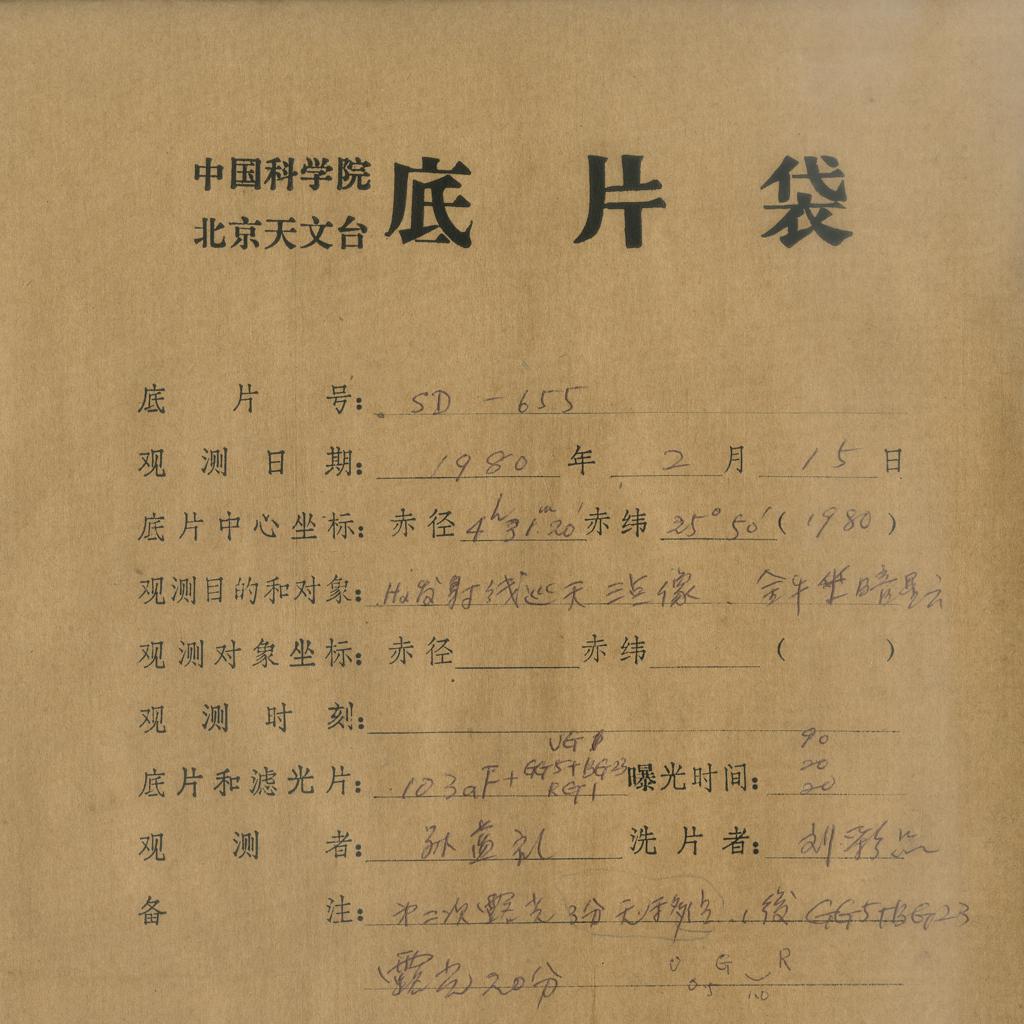 中国科学院
北京天文台 底片袋
底片号: SD-655
观测日期: 1980年 2月 15日
底片中心坐标: 赤径 4h 31m.20' 赤纬 25° 50' (1980)
观测目的和对象: Hα发射线巡天 三点像、金牛座暗星云
观测对象坐标: 赤径 赤纬 ( )
观测时刻:
UG1 90
底片和滤光片: 103aF+ GG5+BG23 曝光时间: 20
RG1 20
观测者: 孙益礼 洗片者: 刘彩品
备注: 第二次露光3分无导 GG5+BG23
露光20分 U G R
0.5 1.0